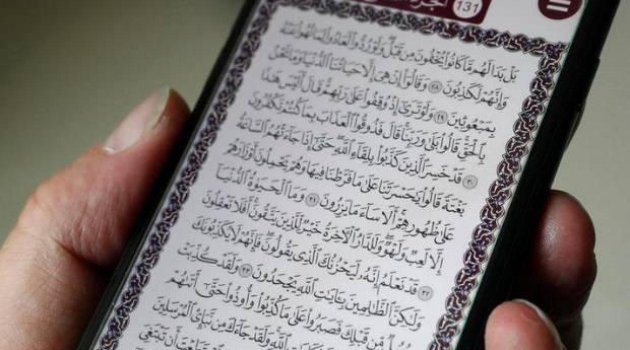 131
بَلۡ بَدَا لَهُم مَّا كَانُواْ يُخۡفُونَ مِن قَبۡلُۖ وَلَوۡ رُدُّواْ لَعَادُواْ لِمَا نُهُواْ عَنۡهُ
وَإِنَّهُمۡ لَكَٰذِبُونَ ٢٨ وَقَالُوٓاْ إِنۡ هِيَ إِلَّا حَيَاتُنَا ٱلدُّنۡيَا وَمَا نَحۡنُ
بِمَبۡعُوثِينَ ٢٩ وَلَوۡ تَرَىٰٓ إِذۡ وُقِفُواْ عَلَىٰ رَبِّهِمۡۚ قَالَ أَلَيۡسَ هَٰذَا
بِٱلۡحَقِّۚ قَالُواْ بَلَىٰ وَرَبِّنَاۚ قَالَ فَذُوقُواْ ٱلۡعَذَابَ بِمَا كُنتُمۡ تَكۡفُرُونَ
٣٠ قَدۡ خَسِرَ ٱلَّذِينَ كَذَّبُواْ بِلِقَآءِ ٱللَّهِۖ حَتَّىٰٓ إِذَا جَآءَتۡهُمُ ٱلسَّاعَةُ
بَغۡتَةٗ قَالُواْ يَٰحَسۡرَتَنَا عَلَىٰ مَا فَرَّطۡنَا فِيهَا وَهُمۡ يَحۡمِلُونَ أَوۡزَارَهُمۡ
عَلَىٰ ظُهُورِهِمۡۚ أَلَا سَآءَ مَا يَزِرُونَ ٣١ وَمَا ٱلۡحَيَوٰةُ ٱلدُّنۡيَآ
إِلَّا لَعِبٞ وَلَهۡوٞۖ وَلَلدَّارُ ٱلۡأٓخِرَةُ خَيۡرٞ لِّلَّذِينَ يَتَّقُونَۚ أَفَلَا تَعۡقِلُونَ
٣٢ قَدۡ نَعۡلَمُ إِنَّهُۥ لَيَحۡزُنُكَ ٱلَّذِي يَقُولُونَۖ فَإِنَّهُمۡ لَا يُكَذِّبُونَكَ
وَلَٰكِنَّ ٱلظَّٰلِمِينَ بِـَٔايَٰتِ ٱللَّهِ يَجۡحَدُونَ ٣٣ وَلَقَدۡ كُذِّبَتۡ
رُسُلٞ مِّن قَبۡلِكَ فَصَبَرُواْ عَلَىٰ مَا كُذِّبُواْ وَأُوذُواْ حَتَّىٰٓ أَتَىٰهُمۡ
ٱللَّهِۚ وَلَقَدۡ جَآءَكَ مِن نَّبَإِيْ ٱلۡمُرۡسَلِينَ
أَن تَبۡتَغِيَ